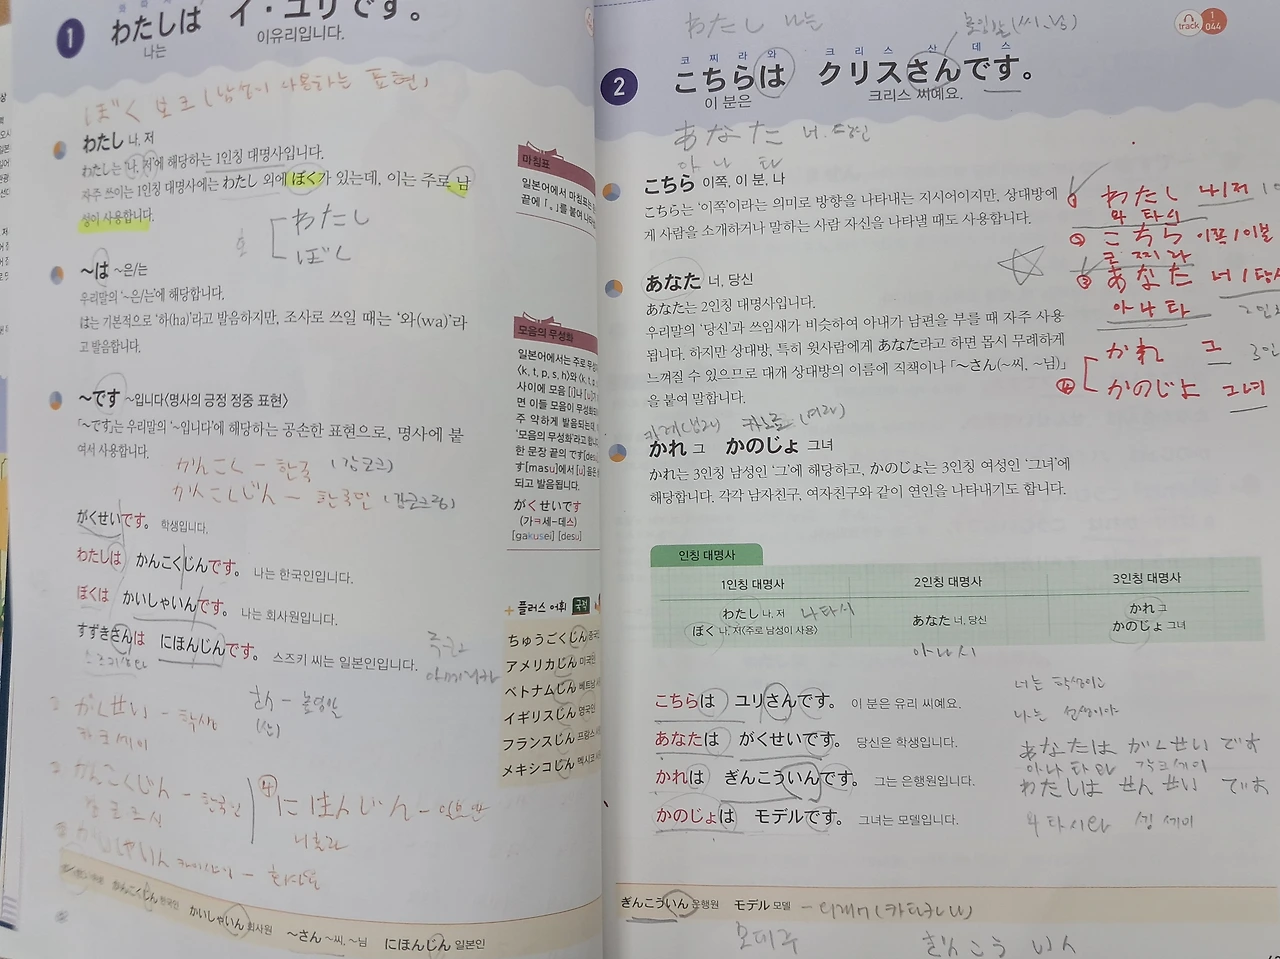 1
わたしは イ・ユリです。
나는 이유리입니다.
ぼく 보쿠 (남성이 사용하는 표현)
わたし 나, 저
わたし는 '나, 저'에 해당하는 1인칭 대명사입니다.
자주 쓰이는 1인칭 대명사에는 わたし 외에 ぼく가 있는데, 이는 주로 남
성이 사용합니다.
わたし
ぼく
~は ~은/는
우리말의 '~은/는'에 해당합니다.
は는 기본적으로 '하(ha)'라고 발음하지만, 조사로 쓰일 때는 '와(wa)'라
고 발음합니다.
~です ~입니다<명사의 긍정 정중 표현>
「~です」는 우리말의 '~입니다'에 해당하는 공손한 표현으로, 명사에 붙
여서 사용합니다.
かんこく - 한국
かんこくじん - 한국인
がくせいです。 학생입니다.
わたしは かんこくじんです。 나는 한국인입니다.
ぼくは かいしゃいんです。 나는 회사원입니다.
すずきさんは にほんじんです。 스즈키 씨는 일본인입니다.
がくせい - 학생
さん - 높임말
(산)
かんこくじん - 한국인
④ にほんじん - 일본인
かんこくじん 한국인
かいしゃいん 회사원
~さん ~씨, ~님
にほんじん 일본인
마침표
일본어에서 마침표는
끝에 「。」를 붙여
모음의 무성화
일본어에서는 주로 무성
<k, t, p, s, h>와 <k, t,
사이에 모음 [i]나 [u]가
면 이들 모음이 무성화되
주 약하게 발음되는데,
'모음의 무성화'라고 합니
한 문장 끝의 です[desu
す[masu]에서 [u] 음은
되고 발음됩니다.
がくせいです
(가ㅋ세-데스)
[gakusei] [desu]
+ 플러스 어휘 국적
ちゅうごくじん 중국
アメリカじん 미국인
ベトナムじん 베트남
イギリスじん 영국인
フランスじん 프랑스
メキシコじん 멕시코
わたし 나는
높임말(씨,님)
track
1
044
2
코 찌 라 와 크 리 스 산 데 스
こちらは クリスさんです。
이 분은 크리스 씨예요.
あなた 너, 당신
아 나 타
こちら 이쪽, 이 분, 나
こちら는 '이쪽'이라는 의미로 방향을 나타내는 지시어이지만, 상대방에
게 사람을 소개하거나 말하는 사람 자신을 나타낼 때도 사용합니다.
あなた 너, 당신
あなた는 2인칭 대명사입니다.
우리말의 '당신'과 쓰임새가 비슷하여 아내가 남편을 부를 때 자주 사용
됩니다. 하지만 상대방, 특히 윗사람에게 あなた라고 하면 몹시 무례하게
느껴질 수 있으므로 대개 상대방의 이름에 직책이나 「~さん(~씨, ~님)」
을 붙여 말합니다.
かれ 그 かのじょ 그녀
かれ는 3인칭 남성인 '그'에 해당하고, かのじょ는 3인칭 여성인 '그녀'에
해당합니다. 각각 남자친구, 여자친구와 같이 연인을 나타내기도 합니다.
わたし 나/저
와 타시
② こちら 이쪽/이분
코 찌 라
③ あなた 너/당신
아 나 타
かれ 그
④ かのじょ 그녀
인칭 대명사
1인칭 대명사 2인칭 대명사 3인칭 대명사
わたし 나, 저 あなた 너, 당신 かれ 그
ぼく 나, 저<주로 남성이 사용> かのじょ 그녀
こちらは ユリさんです。 이 분은 유리 씨예요.
あなたは がくせいです。 당신은 학생입니다.
かれは ぎんこういんです。 그는 은행원입니다.
かのじょは モデルです。 그녀는 모델입니다.
너는 학생이고
나는 선생이야
あなたは がくせい です
わたしは せんせい です
ぎんこういん 은행원 モデル 모델
ぎんこう いん